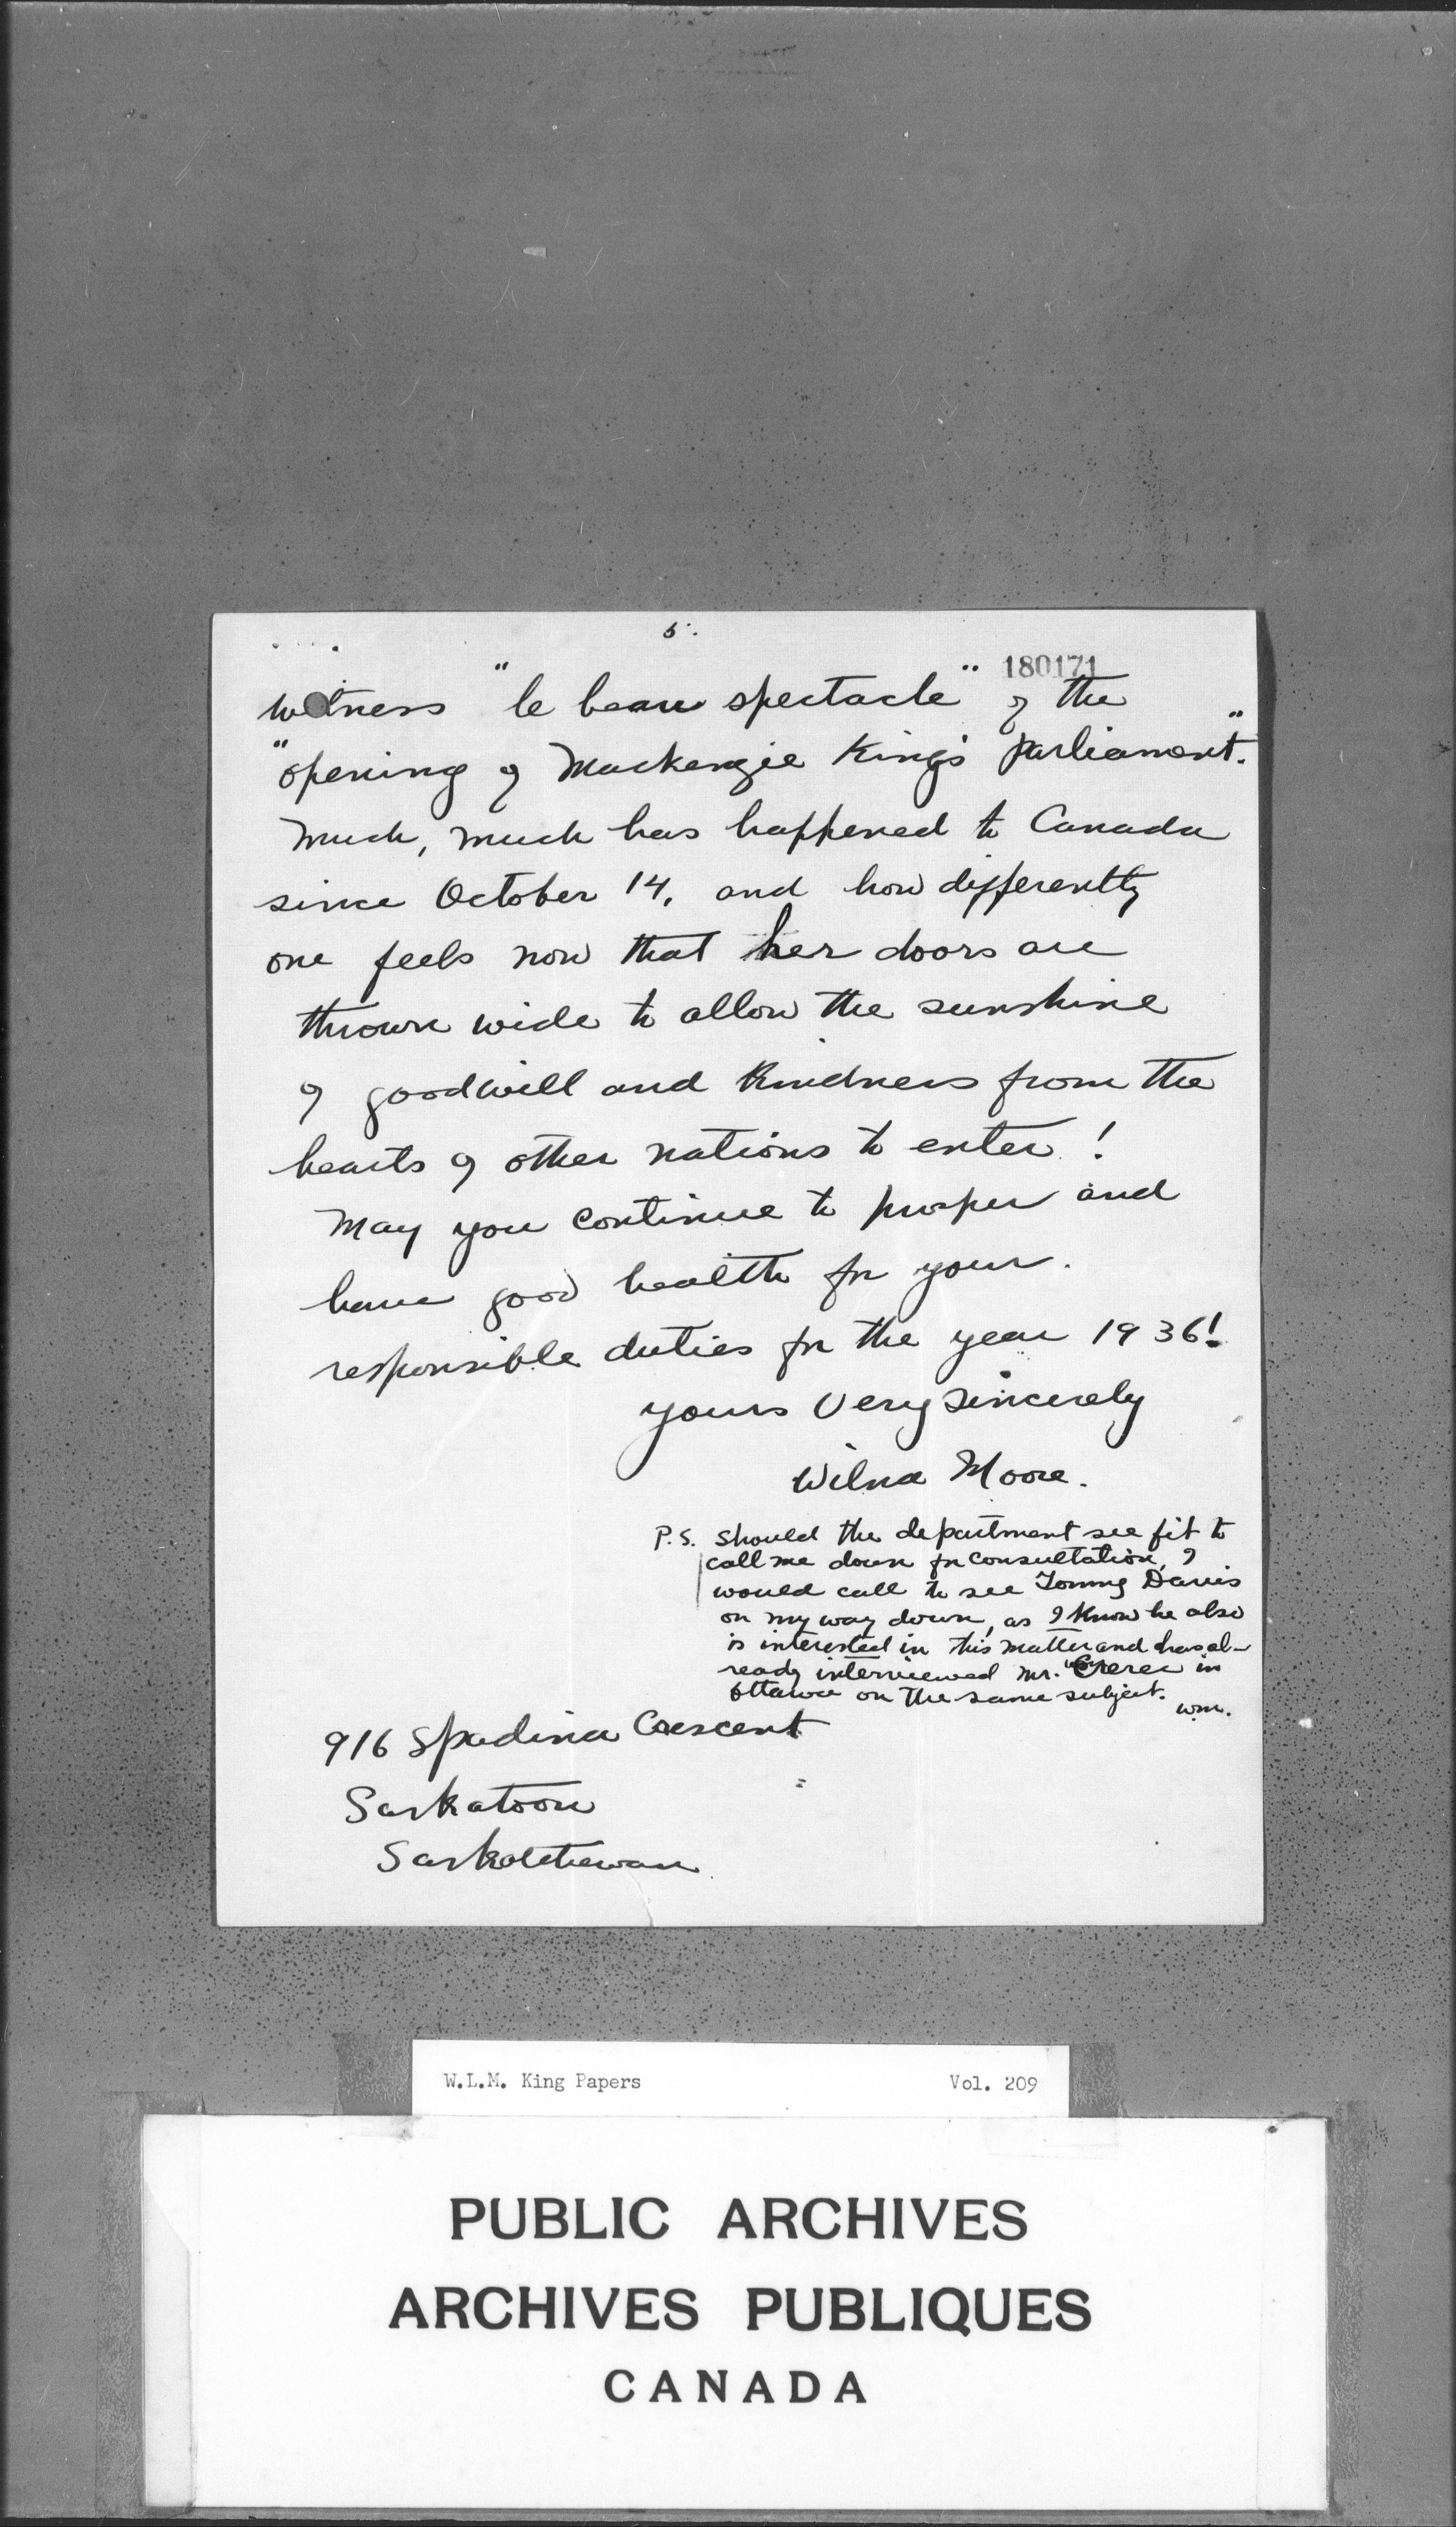 5.
180171
witness "le beau spectacle" of the
"opening of Mackenzie King's Parliament."
Much, much has happened to Canada
since October 14, and how differently
one feels now that her doors are
thrown wide to allow the sunshine
of goodwill and kindness from the
hearts of other nations to enter!
May you continue to prosper and
have good health for your
responsible duties for the year 1936!
yours very sincerely
Wilna Moore.
P.S. Should the department see fit to
call me down for consultation, I
would call to see Tommy Davis
on my way down, as I know he also
is interested in this matter and has al-
ready interviewed Mr. Crerar in
Ottawa on the same subject.
wm.
916 Spadina Crescent
Saskatoon
Saskatchewan
W.L.M. King Papers Vol. 209
PUBLIC ARCHIVES
ARCHIVES PUBLIQUES
CANADA